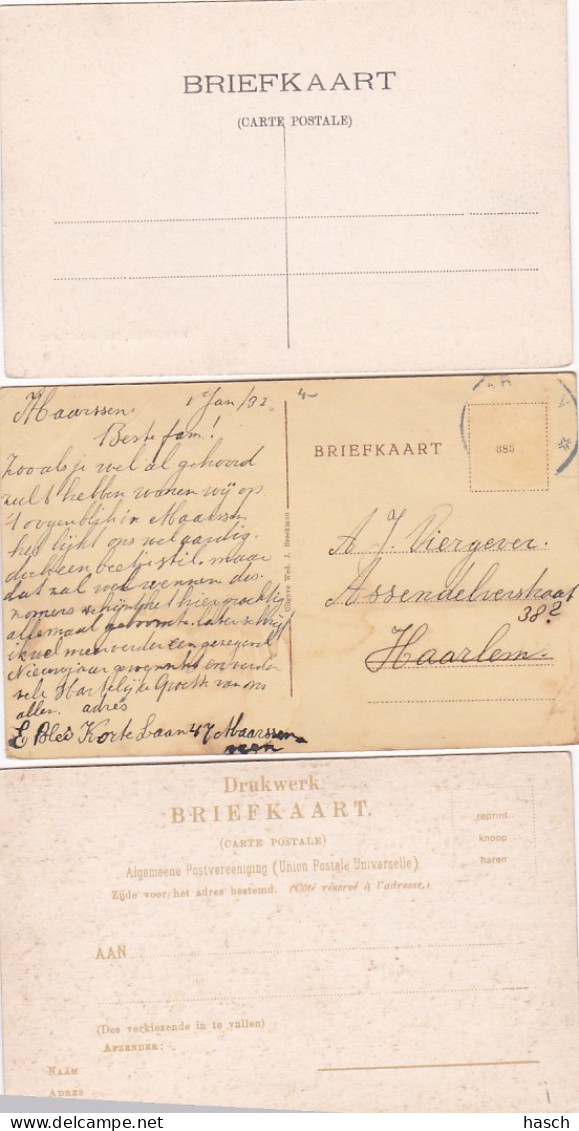 BRIEFKAART
(CARTE POSTALE)
Maarssen. 1 Jan/32
Beste fam!
Zooals je wel al gehoord
zult hebben wonen wij op
't oogenblik in Maarssen
het lijkt ons wel aardig.
een beetje stil. maar
dat zal wel wennen des
zomers schijnt het hier prachtig
allemaal geboomte. later schrijf
ik wel meer verder een gezegend
Nieuwjaar gewenscht en verder
vele Hartelijke Groeten van ons
allen. adres
E Blei Korte Laan 47 Maarssen
veen
Uitgave Wed. J.
BRIEFKAART
685
A J. Viergever.
Assendelverstraat
38 2
Haarlem.
Drukwerk
BRIEFKAART.
(CARTE POSTALE)
Algemeene Postvereeniging (Union Postale Universelle)
Zijde voor het adres bestemd. (Côté réservé à l'adresse.)
reprint
knoop
haren
AAN
(Des verkiezende in te vullen)
AFZENDER:
NAAM
ADRES
hasch